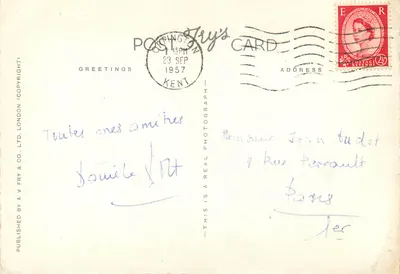 POST Fry's CARD
GREETINGS
ADDRESS
ORPINGTON
PM
23 SEP
1957
KENT
E R
2½D
POSTAGE REVENUE
Toutes mes amitiés
Danièle
Jean
9 Rue Perrault
Paris
1er
PUBLISHED BY A. V. FRY & CO., LTD. LONDON (COPYRIGHT)
—THIS IS A REAL PHOTOGRAPH—